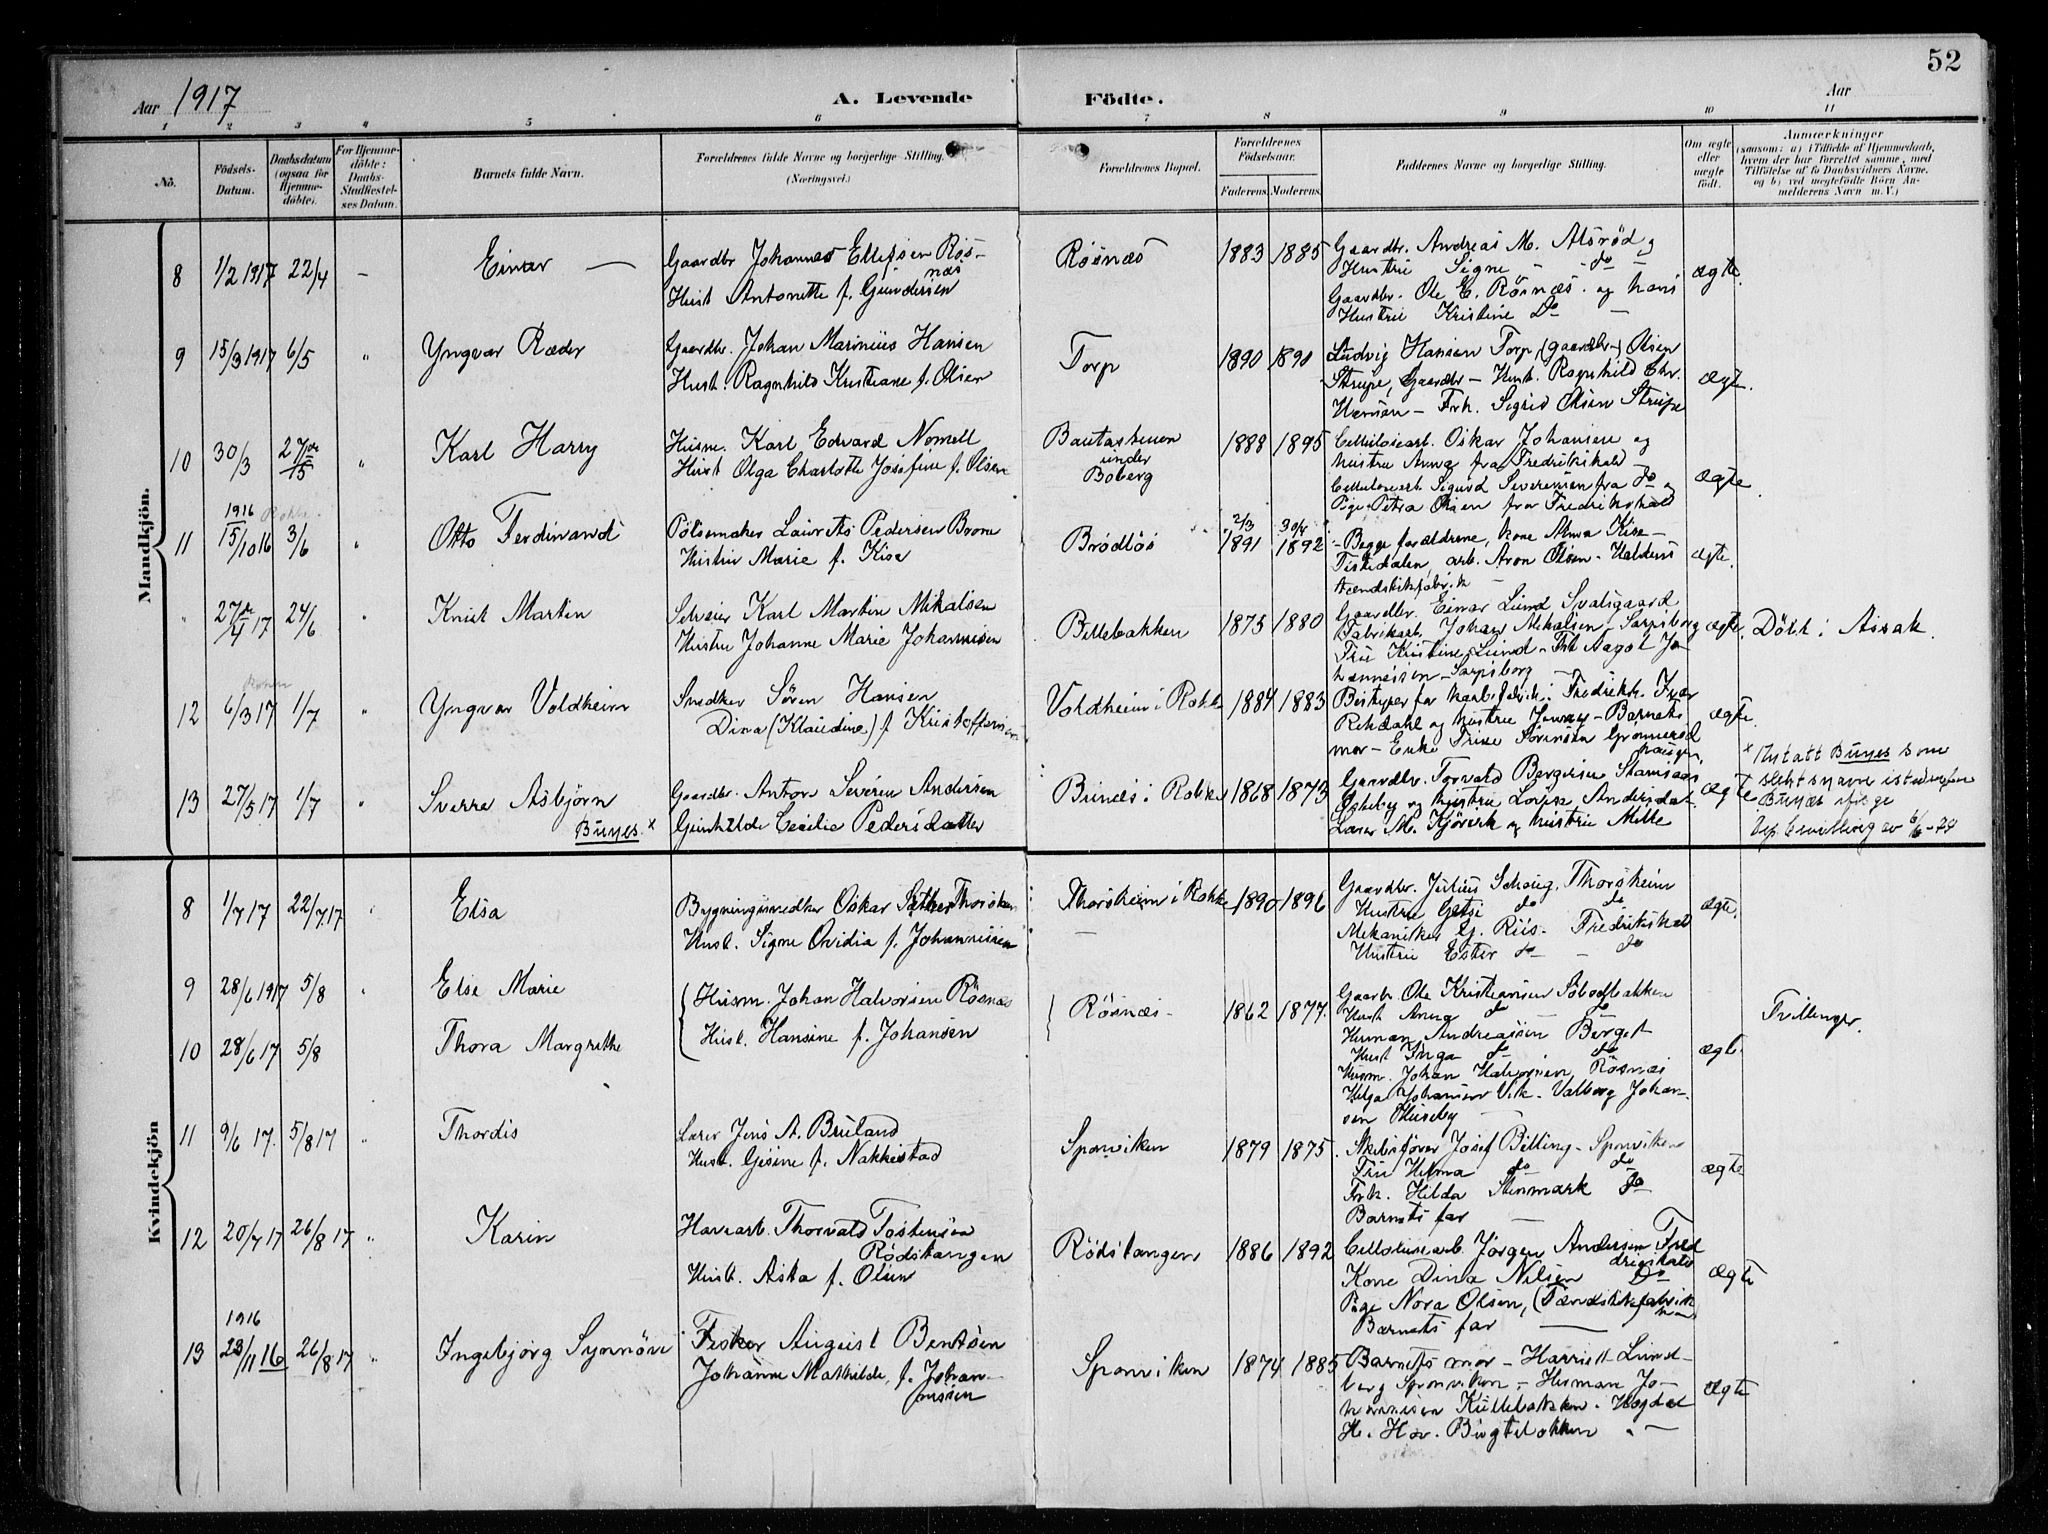 52
Aar 1917
A. Levende
Födte.
Aar
1 2 3 4 5 6 7 8 9 10 11
No.
Födsels-Datum.
Daabsdatum (ogsaa for Hjemme-döbte).
For Hjemme-döbte: Daabs-Stadfæstel-ses Datum.
Barnets fulde Navn.
Forældrenes fulde Navne og borgerlige Stilling.
(Næringsvei.)
Forældrenes Bopæl.
Forældrenes Födselsaar.
Faderens. Moderens.
Faddernes Navne og borgerlige Stilling.
Om ægte eller uægte födt.
Anmærkninger
(saasom: a) i Tilfælde af Hjemmedaab, hvem der har forrettet samme, med Tilföielse af to Daabsvidners Navne, og b) ved uægtefödte Börn Anmelderens Navn m. V.)
Mandkjön.
8 1/2 1917 22/4 – Einar —
Gaardbr. Johannes Ellefsen Røsnæs
Hust. Antonette f. Gundersen
Røsnæs 1883 1885
Gaardbr. Andreas M. Alsrød og
Hustru Signe – do –
Gaardbr. Ole E. Røsnæs og hans
Hustru Kristine Do –
ægte.
9 15/3 1917 6/5 " Yngvar Ræder
Gaardbr. Johan Marinius Hansen
Hust. Ragnhild Kristiane f. Olsen
Torp 1890 1890
Ludvig Hansen Torp (gaardbr.) Olsen
Strupe, Gaardbr – Hust. Ragnhild Chr.
Hansen – Frk. Sigrid Olsen Strupe
ægte.
10 30/3 27de/5 " Karl Harry
Husm. Karl Edvard Nomell
Hust Olga Charlotte Josefine f. Olsen
Bautastenen
under
Boberg
1888 1895
Cellulosearb. Oskar Johansen og
hustru Anna fra Fredrikshald
Cellulosearb. Sigurd Severinsen fra do og
Pige Petra Olsen fra Fredrikshald
ægte
1916
11 15/10 16 3/6 " Otto Ferdinand
Pølsemaker Laurits Pedersen Brone
Hustru Marie f. Kise
Brødløs
2/3 1891 30/5 1892
Begge forældrene, kone Anna Kise –
Fiskedalen, arb. Aron Olsen – Haldens
tændstikfabrik –
ægte.
" 27de/4 17 24/6 " Knut Martin
Selveier Karl Martin Mikalsen
Hustru Johanne Marie Johannisen
Billebakken 1875 1880
Gaardbr. Einar Lund Svalsgaard
Fabrikarb. Johan Mikalsen – Sarpsborg
Fru Kristine Lund – Frk Aagot Johannessen – Sarpsborg
ægte.
Døbt i Assak.
12 6/3 17 1/7 " Yngvar Voldheim
Snedker Søren Hansen
Dina (Klaudine) f. Kristoffersen
Voldheim i Rokke 1884 1883
Bestyrer for karbofabrik i Fredriksh. Ivar
Rekdahl og hustru Jenny – Barnets
mor – Enke Trine Sørensen Grønnerød
haugen
ægte.
13 27/5 17 1/7 " Sverre Asbjørn
Bunes. x
Gaardbr. Anton Severin Andersen
Gunhilde Cecilie Pedersdatter
Bunæs i Rokke 1868 1873
Gaardbr. Torvald Bergersen
og hustru Lovise Andersdat.
Laser M. Kjøverk og hustru Mille
ægte
x Intatt Bunes som
slektsnavn istedenfor
Bunæs ifølge
Dep. bevilling av 6/6-24
Kvindekjön
8 1/7 17 22/7.17 " Elsa
Bygningssnedker Oskar Sæther Thorsheim
Hust. Signe Ovidia f. Johannessen
Thorsheim i Rokke 1890 1896
–
Gaardbr. Julius Schaug, Thorsheim
Hustru Getsi do do
Mekaniker G. Riis – Fredrikshald
Hustru Ester do – do
ægte.
9 28/6 1917 5/8 " Else Marie
Husm. Johan Halvorsen Røsnæs
Hust. Hansine f. Johansen
Røsnæs 1862 1877.
Gaardbr. Ole Kristiansen Sobodbakken
Hust Anna do do
Herman Andreassen Berget
Hust Inga do do
Husm. Johan Halvorsen, Røsnæs
Helga Johansen Vik – Valborg Johansen Huseby –
Tvillinger.
10 28/6 17 5/8 Thora Margrethe
ægte.
11 9/6 17. 5/8 17 " Thordis
Lærer Jens A. Bruland
Hust. Gesine f. Nakkestad
Sponviken 1879 1875.
Skibsfører Josef Billing – Sponviken
Fru Helma do do
Frk. Hilda Stenmark do
Barnets far –
ægte
12 20/7 17 26/8 17 " Karin
Havnearb. Thorvald Tostensen
Rødstangen
Hust. Aska f. Olsen
Rødstangen 1886 1892
Cellulosearb. Jørgen Andersen Fred
drikshald
Kone Dina Nilsen Do
Pige Nora Olsen, (Tændstikfabrik
Barnets far —
ægte
1916
13 23/11 16 26/8 17 " Ingebjørg Synnøve
Fisker August Bentsen
Johanne Mathilde, f. Johannssen
Sponviken 1874 1885
Barnets mor – Harriett Lundberg Sponviken – Herman Johannisen Kullebakken – Hogdal
H. Hov. Bugtebakken " –
ægte